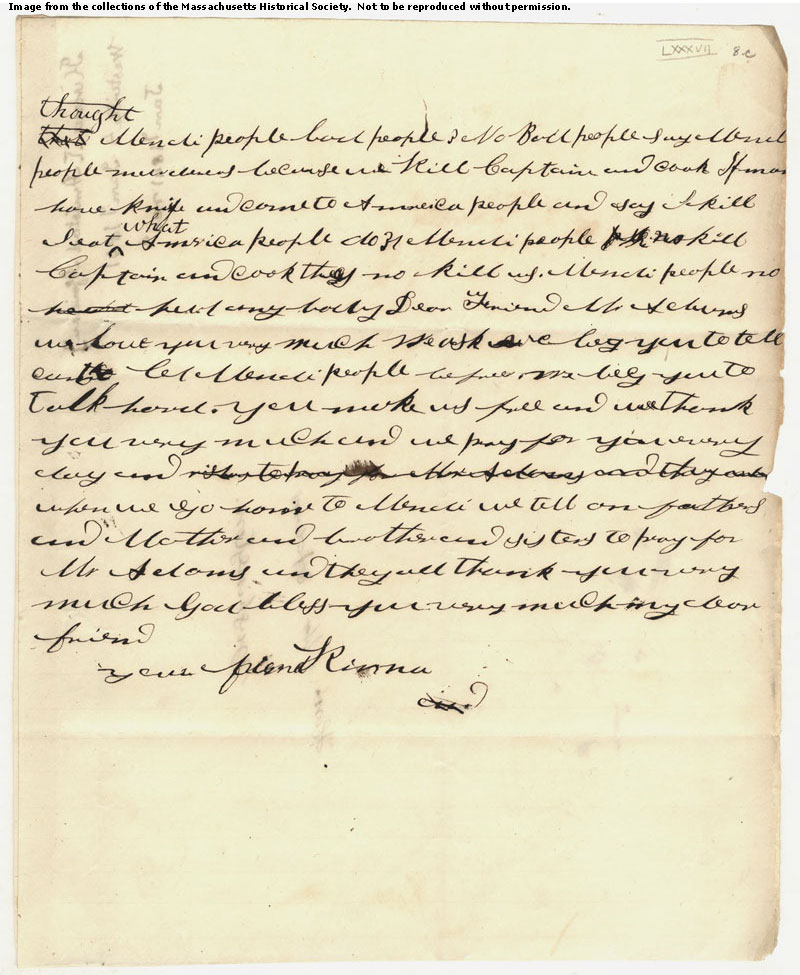 Image from the collections of the Massachusetts Historical Society. Not to be reproduced without permission.
LXXXVII 8c
thought
that Mendi people bad people & No Bad people say Mendi
people murderers because we Kill Captain and cook If man
have knife and come to America people and say I kill
what
I eat America people do? Mendi people no kill
Captain and cook they no kill us. Mendi people no
held any body Dear Friend Mr Adams
we love you very much we ask we beg you to tell
court let Mendi people be free. we beg you to
talk hard. you make us free and we thank
you very much and we pray for you every
day and to pray for Mr Adams and they
when we go home to Mendi we tell our fathers
and Mother and brother and sisters to pray for
Mr Adams and they all thank you very
much God bless you very much my dear
friend
your friend Kinna
and